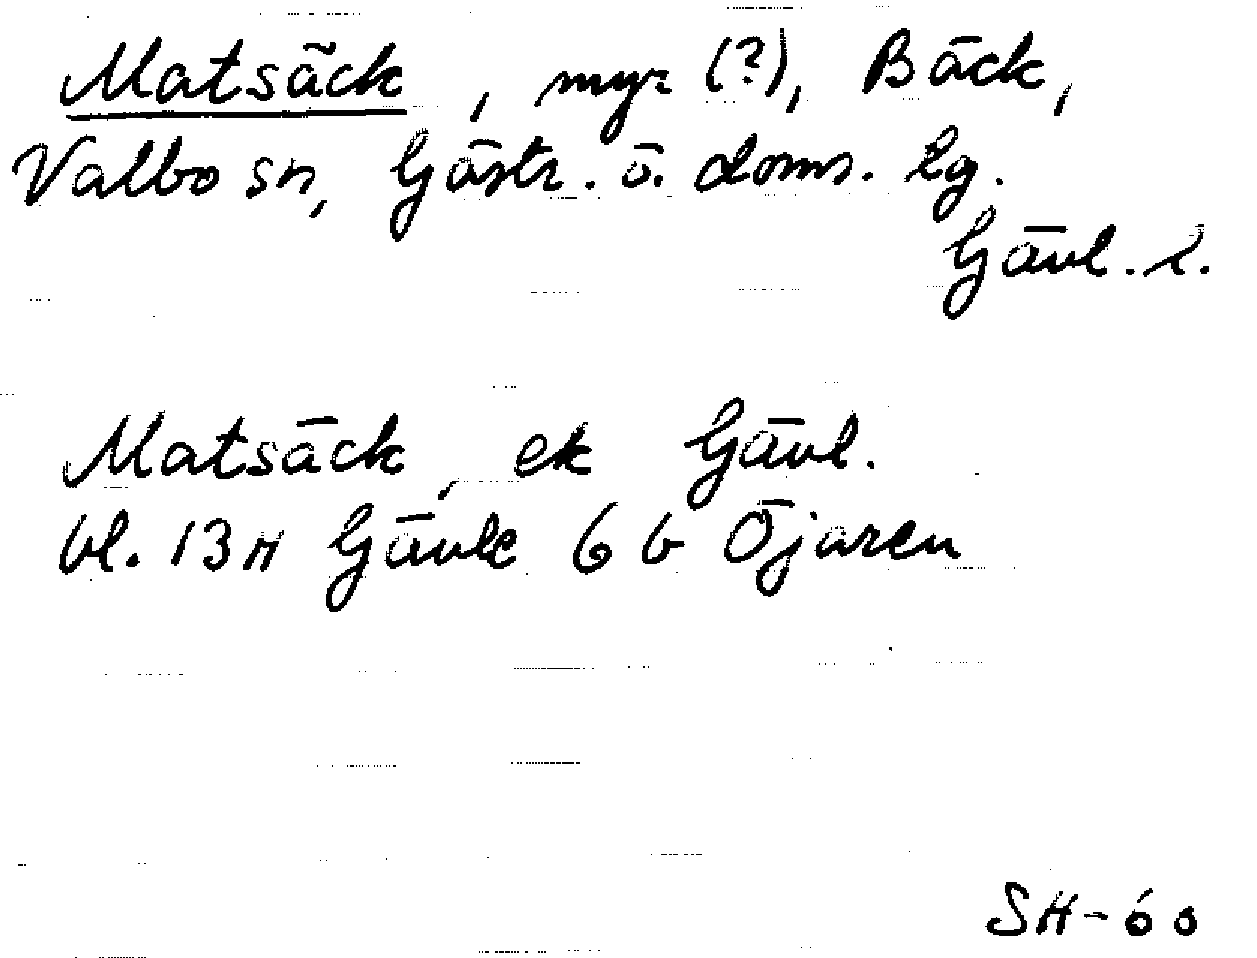 Matsäck, myr (?), Bäck,
Valbo sn, Gästr. ö. doms. lg.
Gävl. l.
Matsäck, ek Gävl.
bl. 13H Gävle 6 b Öjaren
SH-60